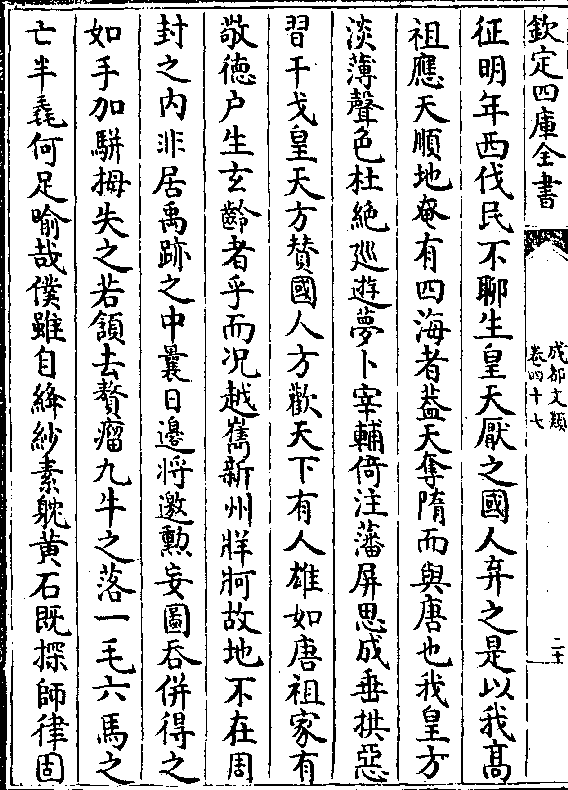 欽定四庫全書
成都文類
卷四十七
二十
征明年西伐民不聊生皇天厭之國人弃之是以我高
祖應天順地奄有四海者葢天奪隋而與唐也我皇方
淡薄聲色杜絶廵遊夢卜宰輔倚注藩屏思成垂拱惡
習干戈皇天方賛國人方歡天下有人雄如唐祖家有
敬德户生玄齡者乎而况越嶲新州牂牁故地不在周
封之内非居禹跡之中曩日邊将邀勲妄圖吞併得之
如手加駢拇失之若頷去贅瘤九牛之落一毛六馬之
亡半毳何足喻哉僕雖自絳紗素躭黄石既探師律固